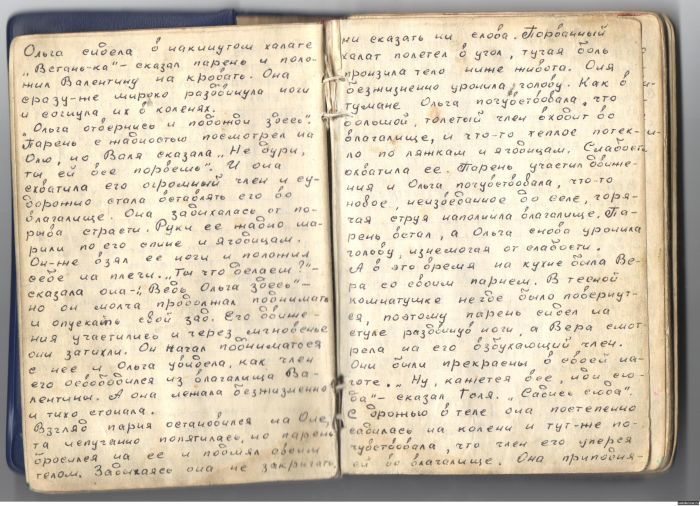 Ольга сидела в накинутом халате
„Встань-ка" – сказал парень и поло-
жил Валентину на кровать. Она
сразу-же широко раздвинула ноги
и согнула их в коленях.
„Ольга отвернись и подожди здесь".
Парень с жадностью посмотрел на
Олю, но Валя сказала „Не дури,
ты ей все порвешь". И она
схватила его огромный член и су-
дорожно стала вставлять его во
влагалище. Она задыхалась от по-
рыва страсти. Руки ее жадно ша-
рили по его спине и ягодицам.
Он-же взял ее ноги и положил
себе на плечи. „Ты что делаешь?"–
сказала она–„Ведь Ольга здесь"–
но он молча продолжал поднимать
и опускать свой зад. Его движе-
ния участились и через мгновенье
они затихли. Он начал подниматься
с нее и Ольга увидела, как член
его освободился из влагалища Ва-
лентины. А она лежала безжизненно
и тихо стонала.
Взгляд парня остановился на Оле,
та испуганно попятилась, но парень
бросился на ее и подмял своим
телом. Задыхаясь она не закричать,
ни сказать ни слова. Порванный
халат полетел в угол, тучая боль
пронзила тело ниже живота. Оля
безжизненно уронила голову. Как в
тумане Ольга почувствовала, что
большой, толстый член входит во
влагалище, и что-то теплое потек-
ло по ляжкам и ягодицам. Слабость
охватила ее. Парень участил движе-
ния и Ольга почувствовала, что-то
новое, неизведанное до селе, горя-
чая струя наполнила влагалище. Па-
рень встал, а Ольга снова уронила
голову, изнемогая от слабости.
А в это время на кухне была Ве-
ра со своим парнем. В тесной
комнатушке негде было повернут-
ся, поэтому парень сидел на
стуле раздвинув ноги, а Вера смот-
рела на его взбухающий член.
Они были прекрасны в своей на-
готе. „Ну, кажется все, иди сю-
да"– сказал Толя. „Садись сюда".
С дрожью в теле она постепенно
садилась на колени и тут-же по-
чувствовала, что член его уперся
ей во влагалище. Она приподня-